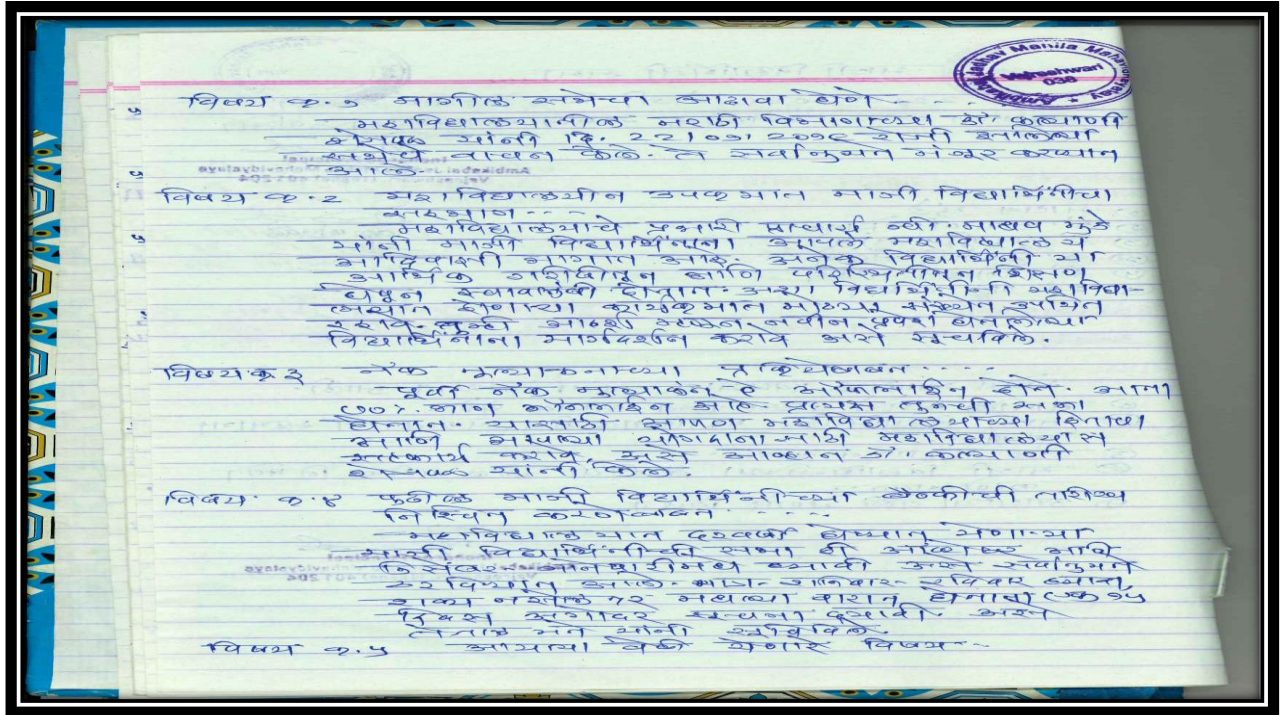 Ambikabai Jadhav Mahila Mahavidyalay
Vajreshwari
विषय क्र.१ मागील सभेचा आढावा घेणे - - . .
महाविद्यालयातील मराठी विभागाच्या डॉ. कल्याणी
शेजवळ यांनी दि. 22/09/2018 रोजी झालेल्या
सभेचे वाचन केले. ते सर्वानुमते मंजूर करण्यात
आले.
विषय क्र.२ महाविद्यालयीन उपक्रमात माजी विद्यार्थिनींचा
सहभाग - - - -
महाविद्यालयाचे प्रभारी प्राचार्य श्री. माधव मुंडे
यांनी माजी विद्यार्थिनींना आपले महाविद्यालय हे
आदिवासी भागात आहे. अनेक विद्यार्थिनी या
आर्थिक परिस्थितीतून शिक्षण
घेवून स्वावलंबी होतात. अशा विद्यार्थिनींनी महाविद्या-
लयात होणाऱ्या कार्यक्रमात मोठ्या संख्येने उपस्थित
रहावे. तुम्ही म्हणून नवीन प्रवेश घेतलेल्या
विद्यार्थिनींना मार्गदर्शन करावे असे सूचविले.
विषय क्र ३ नॅक मूल्यांकनाच्या प्रक्रियेबाबत - - - - -
पूर्वी नॅक मूल्यांकन हे ऑफलाईन होते. आता
७०% भाग ऑनलाईन आहे. प्रत्यक्ष तुमची सभा
घेतात. यासाठी आपण महाविद्यालयाच्या हिताचा
आणि योगदानासाठी महाविद्यालयास
सहकार्य करावे, असे आव्हान डॉ. कल्याणी
शेजवळ यांनी केले.
विषय क्र.४ पुढील माजी विद्यार्थिनींच्या बैठकीची तारीख
निश्चित करणेबाबत - - - - -
महाविद्यालयात दरवर्षी घेण्यात येणाऱ्या
माजी विद्यार्थिनींची सभा ही ऑक्टोबर आणि
डिसेंबर मध्ये घ्यावी असे सर्वानुमते
ठरविण्यात आले. शनिवार - रविवार घ्यावा,
शक्य नसेल तर मधल्या वारात घेताना १५
दिवस अगोदर सूचना द्यावी. असे
यांनी सूचविले.
विषय क्र.५ आयत्या वेळी येणारे विषय - -